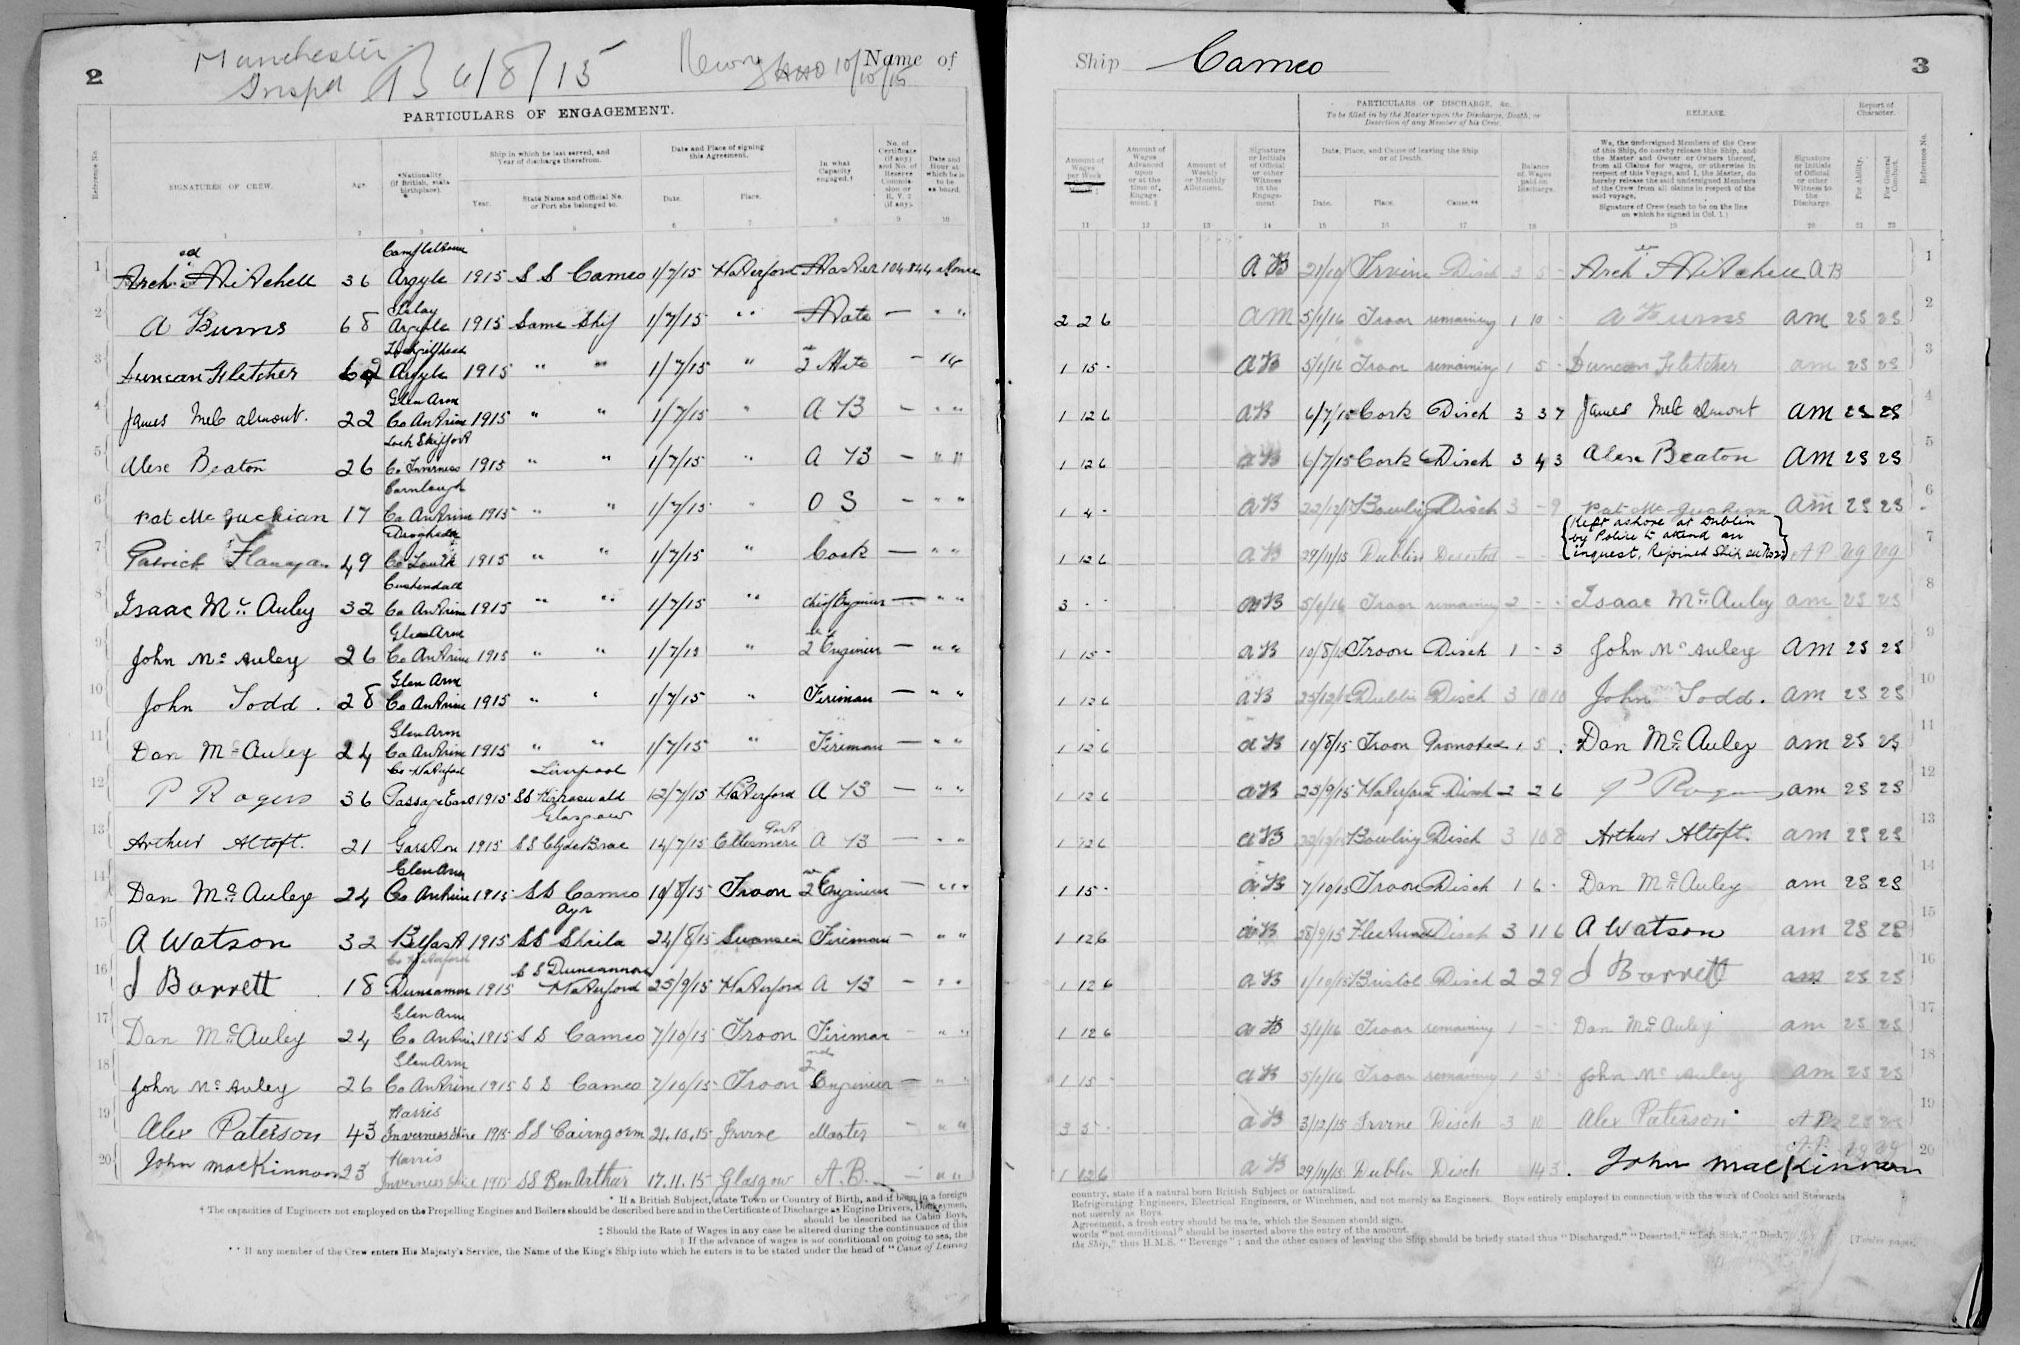 2
Manchester
Inspd 6/8/15
Newry 10/10/15
Name of
PARTICULARS OF ENGAGEMENT.
Reference No.
SIGNATURES OF CREW.
Age.
*Nationality (if British, state birthplace).
Ship in which he last served, and Year of discharge therefrom.
Year.
State Name and Official No. or Port she belonged to.
Date and Place of signing this Agreement.
Date.
Place.
In what Capacity engaged.†
No. of Certificate (if any) and No. of Reserve Commission or R.V. 2 (if any).
Date and Hour at which he is to be on board.
1 2 3 4 5 6 7 8 9 10
1 Archd Mitchell 36 Campbeltown Argyle 1915 S S Cameo 1/7/15 Waterford Master 104844 at once
2 A Burns 68 Islay Argyle 1915 Same Ship 1/7/15 " " Mate — " "
3 Duncan Fletcher 62 Lochgilphead Argyle 1915 " " 1/7/15 " 2 Mate -
4 James McCalmont. 22 Glen Arm Co Antrim 1915 " " 1/7/15 " A B — " "
5 Alex Beaton 26 Loch Skipport Co Inverness 1915 " " 1/7/15 " A B — " "
6 Pat McGuckian 17 Carnlough Co Antrim 1915 " " 1/7/15 " O S — " "
7 Patrick Flanagan 49 Drogheda Co Louth 1915 " " 1/7/15 " Cook — " "
8 Isaac McAuley 32 Cushendall Co Antrim 1915 " " 1/7/15 " Chief Engineer — " "
9 John McAuley 26 Glen Arm Co Antrim 1915 " " 1/7/15 " 2 Engineer — " "
10 John Todd. 28 Glen Arm Co Antrim 1915 " " 1/7/15 " Fireman — " "
11 Dan McAuley 24 Glen Arm Co Antrim 1915 " " 1/7/15 " Fireman — " "
12 P Rogers 36 Co Waterford Passage East 1915 Liverpool SS Kirkoswald 12/7/15 Waterford A B — " "
13 Arthur Altoft. 21 Garston 1915 Glasgow S S Clyde Brae 14/7/15 Ellesmere Port A B — " "
14 Dan McAuley 24 Glen Arm Co Antrim 1915 S S Cameo 10/8/15 Troon 2 Engineer — " "
15 A Watson 32 Belfast 1915 Ayr SS Sheila 24/8/15 Swansea Fireman — " "
16 J Barrett 18 Co Waterford Duncannon 1915 S S Duncannon Waterford 25/9/15 Waterford A B — " "
17 Dan McAuley 24 Glen Arm Co Antrim 1915 S S Cameo 7/10/15 Troon Fireman — " "
18 John McAuley 26 Glen Arm Co Antrim 1915 S S Cameo 7/10/15 Troon 2nd Engineer — " "
19 Alex Paterson 43 Harris Inverness Shire 1915 SS Cairngorm 21.10.15 Irvine Master - " "
20 John MacKinnon 23 Harris Inverness Shire 1915 SS Ben Arthur 17.11.15 Glasgow A.B. — " "
* If a British Subject, state Town or Country of Birth, and if born in a foreign
† The capacities of Engineers not employed on the Propelling Engines and Boilers should be described here and in the Certificate of Discharge as Engine Drivers, Donkeymen,
should be described as Cabin Boys,
‡ Should the Rate of Wages in any case be altered during the continuance of this
|| If the advance of wages is not conditional on going to sea, the
** If any member of the Crew enters His Majesty's Service, the Name of the King's Ship into which he enters is to be stated under the head of "Cause of Leaving
Ship Cameo 3
Amount of Wages per Week
Amount of Wages Advanced upon or at the time of Engagement. ‡
Amount of Weekly or Monthly Allotment.
Signature or Initials of Official or other Witness to the Engagement
PARTICULARS OF DISCHARGE, &c.
To be filled in by the Master upon the Discharge, Death, or Desertion of any Member of his Crew.
Date, Place, and Cause of leaving the Ship or of Death.
Date. Place. Cause.**
Balance of Wages paid on Discharge.
RELEASE.
We, the undersigned Members of the Crew of this Ship, do hereby release this Ship, and the Master and Owner or Owners thereof, from all Claims for wages, or otherwise in respect of this Voyage, and I, the Master, do hereby release the said undersigned Members of the Crew from all claims in respect of the said voyage.
Signature of Crew (each to be on the line on which he signed in Col. 1.)
Signature or Initials of Official or other Witness to the Discharge.
Report of Character.
For Ability.
For General Conduct.
Reference No.
11 12 13 14 15 16 17 18 19 20 21 22
AB 21/10/ Irvine Disch 3 5 - Archd Mitchell AB 1
2 2 6 AM 5/1/16 Troon remaining 1 10 - A Burns am 2S 2S 2
1 15 - AB 5/1/16 Troon remaining 1 5 - Duncan Fletcher am 2S 2S 3
1 12 6 AB 6/7/15 Cork Disch 3 3 7 James McCalmont am 2S 2S 4
1 12 6 AB 6/7/15 Cork Disch 3 4 3 Alex Beaton am 2S 2S 5
1 4 - AB 22/12/15 Bowling Disch 3 - 9 Pat McGuckian am 2S 2S 6
1 12 6 AB 29/11/15 Dublin Deserted - - { Kept ashore at Dublin by Police to attend an inquest, Rejoined Ship } AP 7
3 - - AB 5/1/16 Troon remaining 2 - - Isaac McAuley am 2S 2S 8
1 15 - AB 10/8/15 Troon Disch 1 - 3 John McAuley am 2S 2S 9
1 12 6 AB 25/12/15 Dublin Disch 3 10 10 John Todd. am 2S 2S 10
1 12 6 AB 10/8/15 Troon Promoted 1 5 . Dan McAuley am 2S 2S 11
1 12 6 AB 25/9/15 Waterford Disch 2 2 6 P Rogers am 2S 2S 12
1 12 6 AB 22/12/15 Bowling Disch 3 10 8 Arthur Altoft. am 2S 2S 13
1 15 - AB 7/10/15 Troon Disch 1 6 - Dan McAuley am 2S 2S 14
1 12 6 AB 28/9/15 Fleetwood Disch 3 11 6 A Watson am 2S 2S 15
1 12 6 AB 1/10/15 Bristol Disch 2 2 9 J Barrett am 2S 2S 16
1 12 6 AB 5/1/16 Troon remaining 1 - - Dan McAuley am 2S 2S 17
1 15 - AB 5/1/16 Troon remaining 1 5 - John McAuley am 2S 2S 18
3 5 - AB 3/12/15 Irvine Disch 3 10 Alex Paterson AP 2S 2S 19
1 12 6 AB 29/11/15 Dublin Disch 14 3. John MacKinnon AP 20
country, state if a natural born British Subject or naturalized.
Refrigerating Engineers, Electrical Engineers, or Winchmen, and not merely as Engineers. Boys entirely employed in connection with the work of Cooks and Stewards
not merely as Boys.
Agreement, a fresh entry should be made, which the Seamen should sign.
words "not conditional" should be inserted above the entry of the amount.
the Ship," thus H.M.S. "Revenge"; and the other causes of leaving the Ship should be briefly stated thus "Discharged," "Deserted," "Left Sick," "Died."
[Twelve pages.